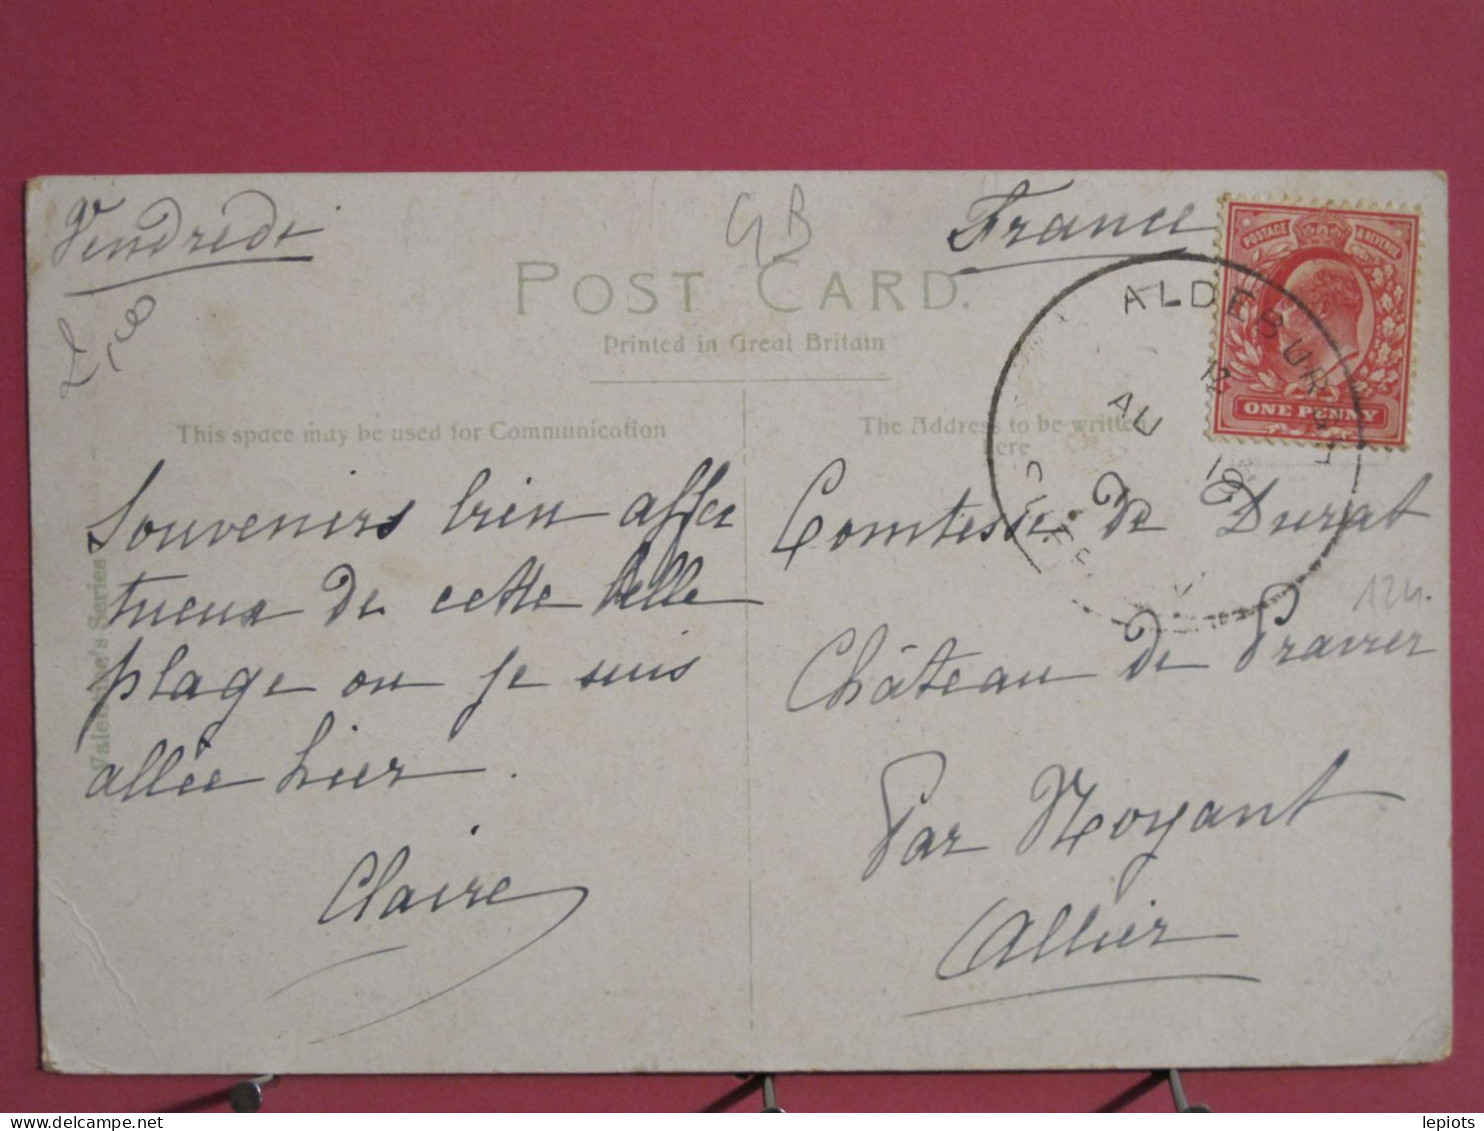 Vendredi
GB
France
POST CARD.
Printed in Great Britain
POSTAGE & REVENUE
ONE PENNY
ALDEBURGH
AU
12
10
This space may be used for Communication
The Address to be written
here
Valentine's Series
Souvenirs bien affec
tueux de cette belle
plage ou je suis
allée hier.
Claire
Comtesse de Durat
Château de
Par Noyant
Allier
124.
lepiots